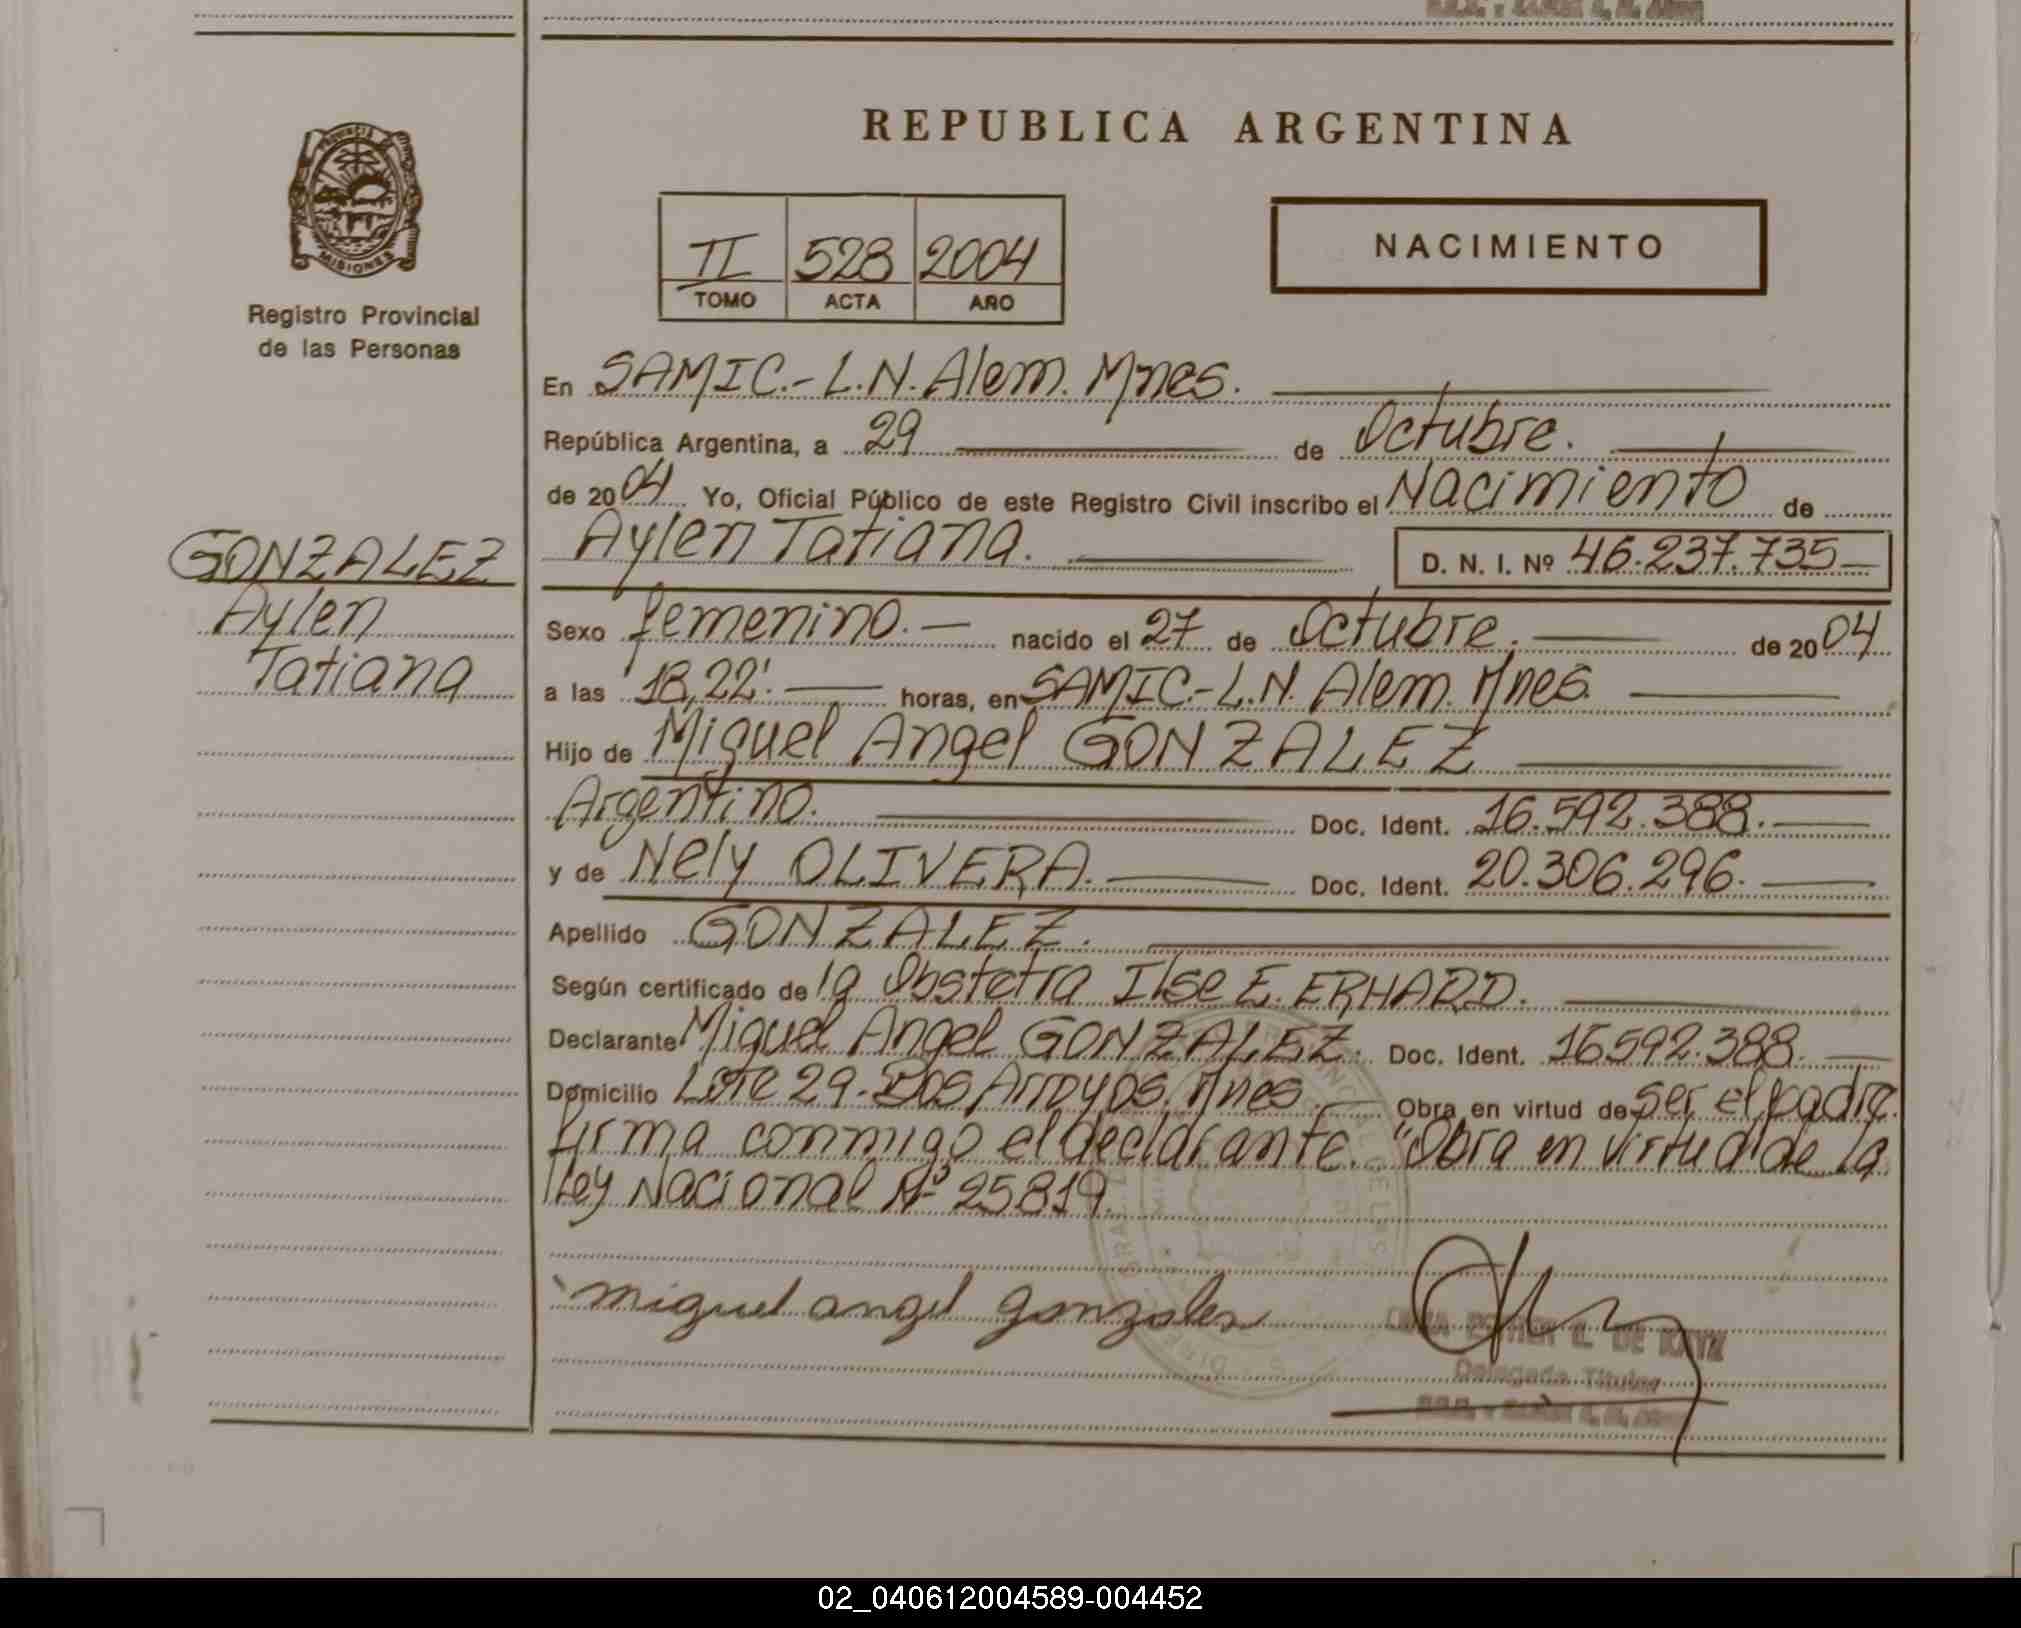 REPUBLICA ARGENTINA
PROVINCIA
MISIONES
Registro Provincial
de las Personas
II 528 2004
TOMO ACTA AÑO
NACIMIENTO
En SAMIC.- L.N. Alem. Mnes.
República Argentina, a 29 de Octubre.
de 2004 Yo, Oficial Público de este Registro Civil inscribo el Nacimiento de
Aylen Tatiana. D. N. I. Nº 46.237.735
GONZALEZ
Aylen
Tatiana
Sexo femenino. nacido el 27 de Octubre. de 2004
a las 18,22'. horas, en SAMIC.- L.N. Alem. Mnes.
Hijo de Miguel Angel GONZALEZ
Argentino. Doc. Ident. 16.592.388.
y de Nely OLIVERA. Doc. Ident. 20.306.296.
Apellido GONZALEZ.
Según certificado de la Obstetra Ilse E. ERHARD.
Declarante Miguel Angel GONZALEZ. Doc. Ident. 16592.388.
Domicilio Lote 29- Dos Arroyos. Mnes. Obra en virtud de ser el padre.
firma conmigo el declarante. "Obra en virtud de la
Ley Nacional Nº 25819.
miguel angel gonzales
ESTHER L. DE
Delegada Titular
02_040612004589-004452